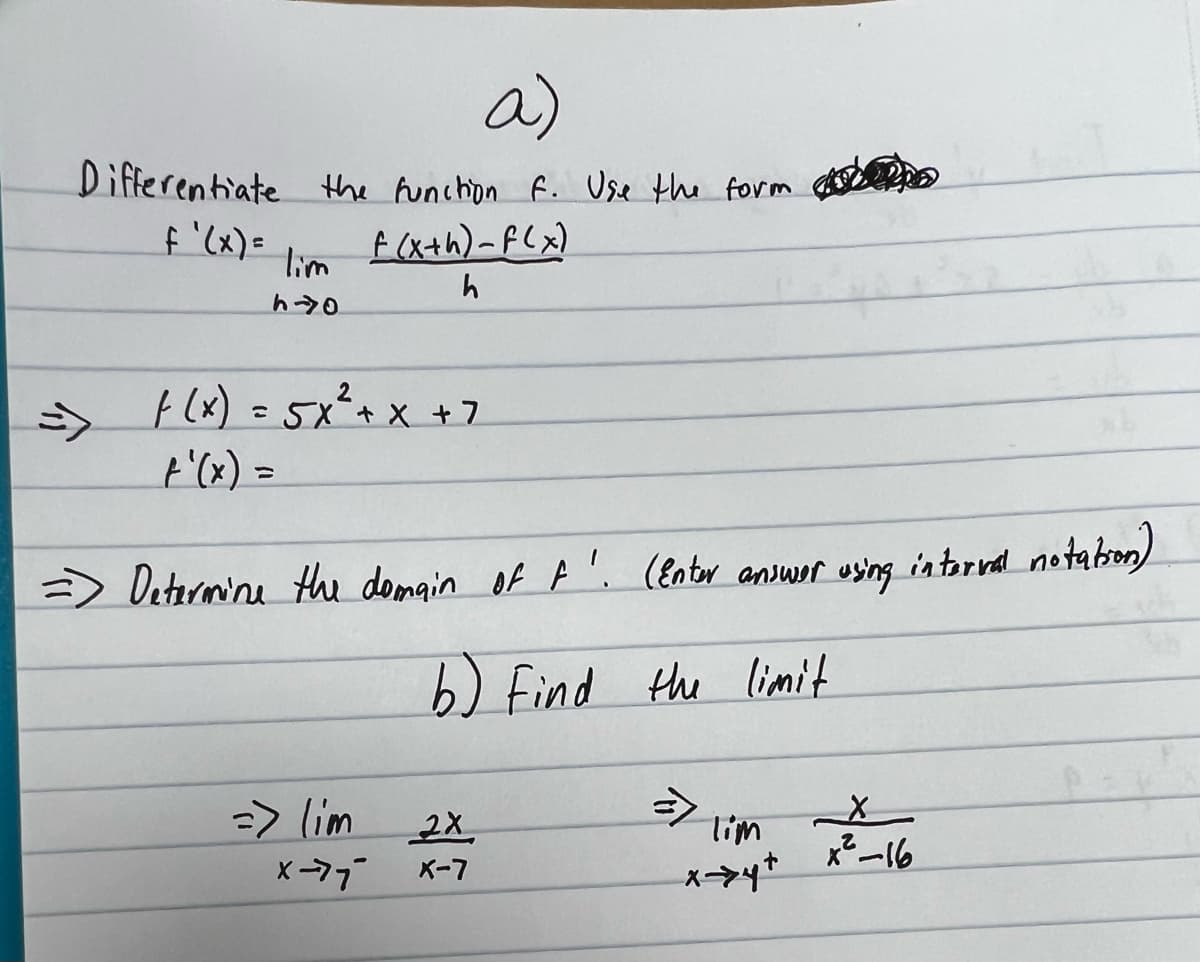 a)
Differentiate the function f. Use the form
f'(x) = lim h→0 f(x+h)-f(x) / h
=> f(x) = 5x² + x + 7
f'(x) =
=> Determine the domain of f'. (Enter answer using interval notation)
b) Find the limit
=> lim x→7⁻ 2x / x-7
=> lim x→4⁺ x / x²-16